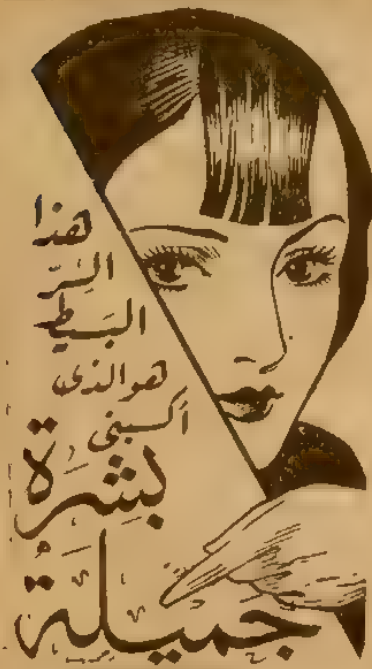 هذا
السِّرّ
البَسيط
هو الذى
أكسبنى
بَشَرة
جميلة